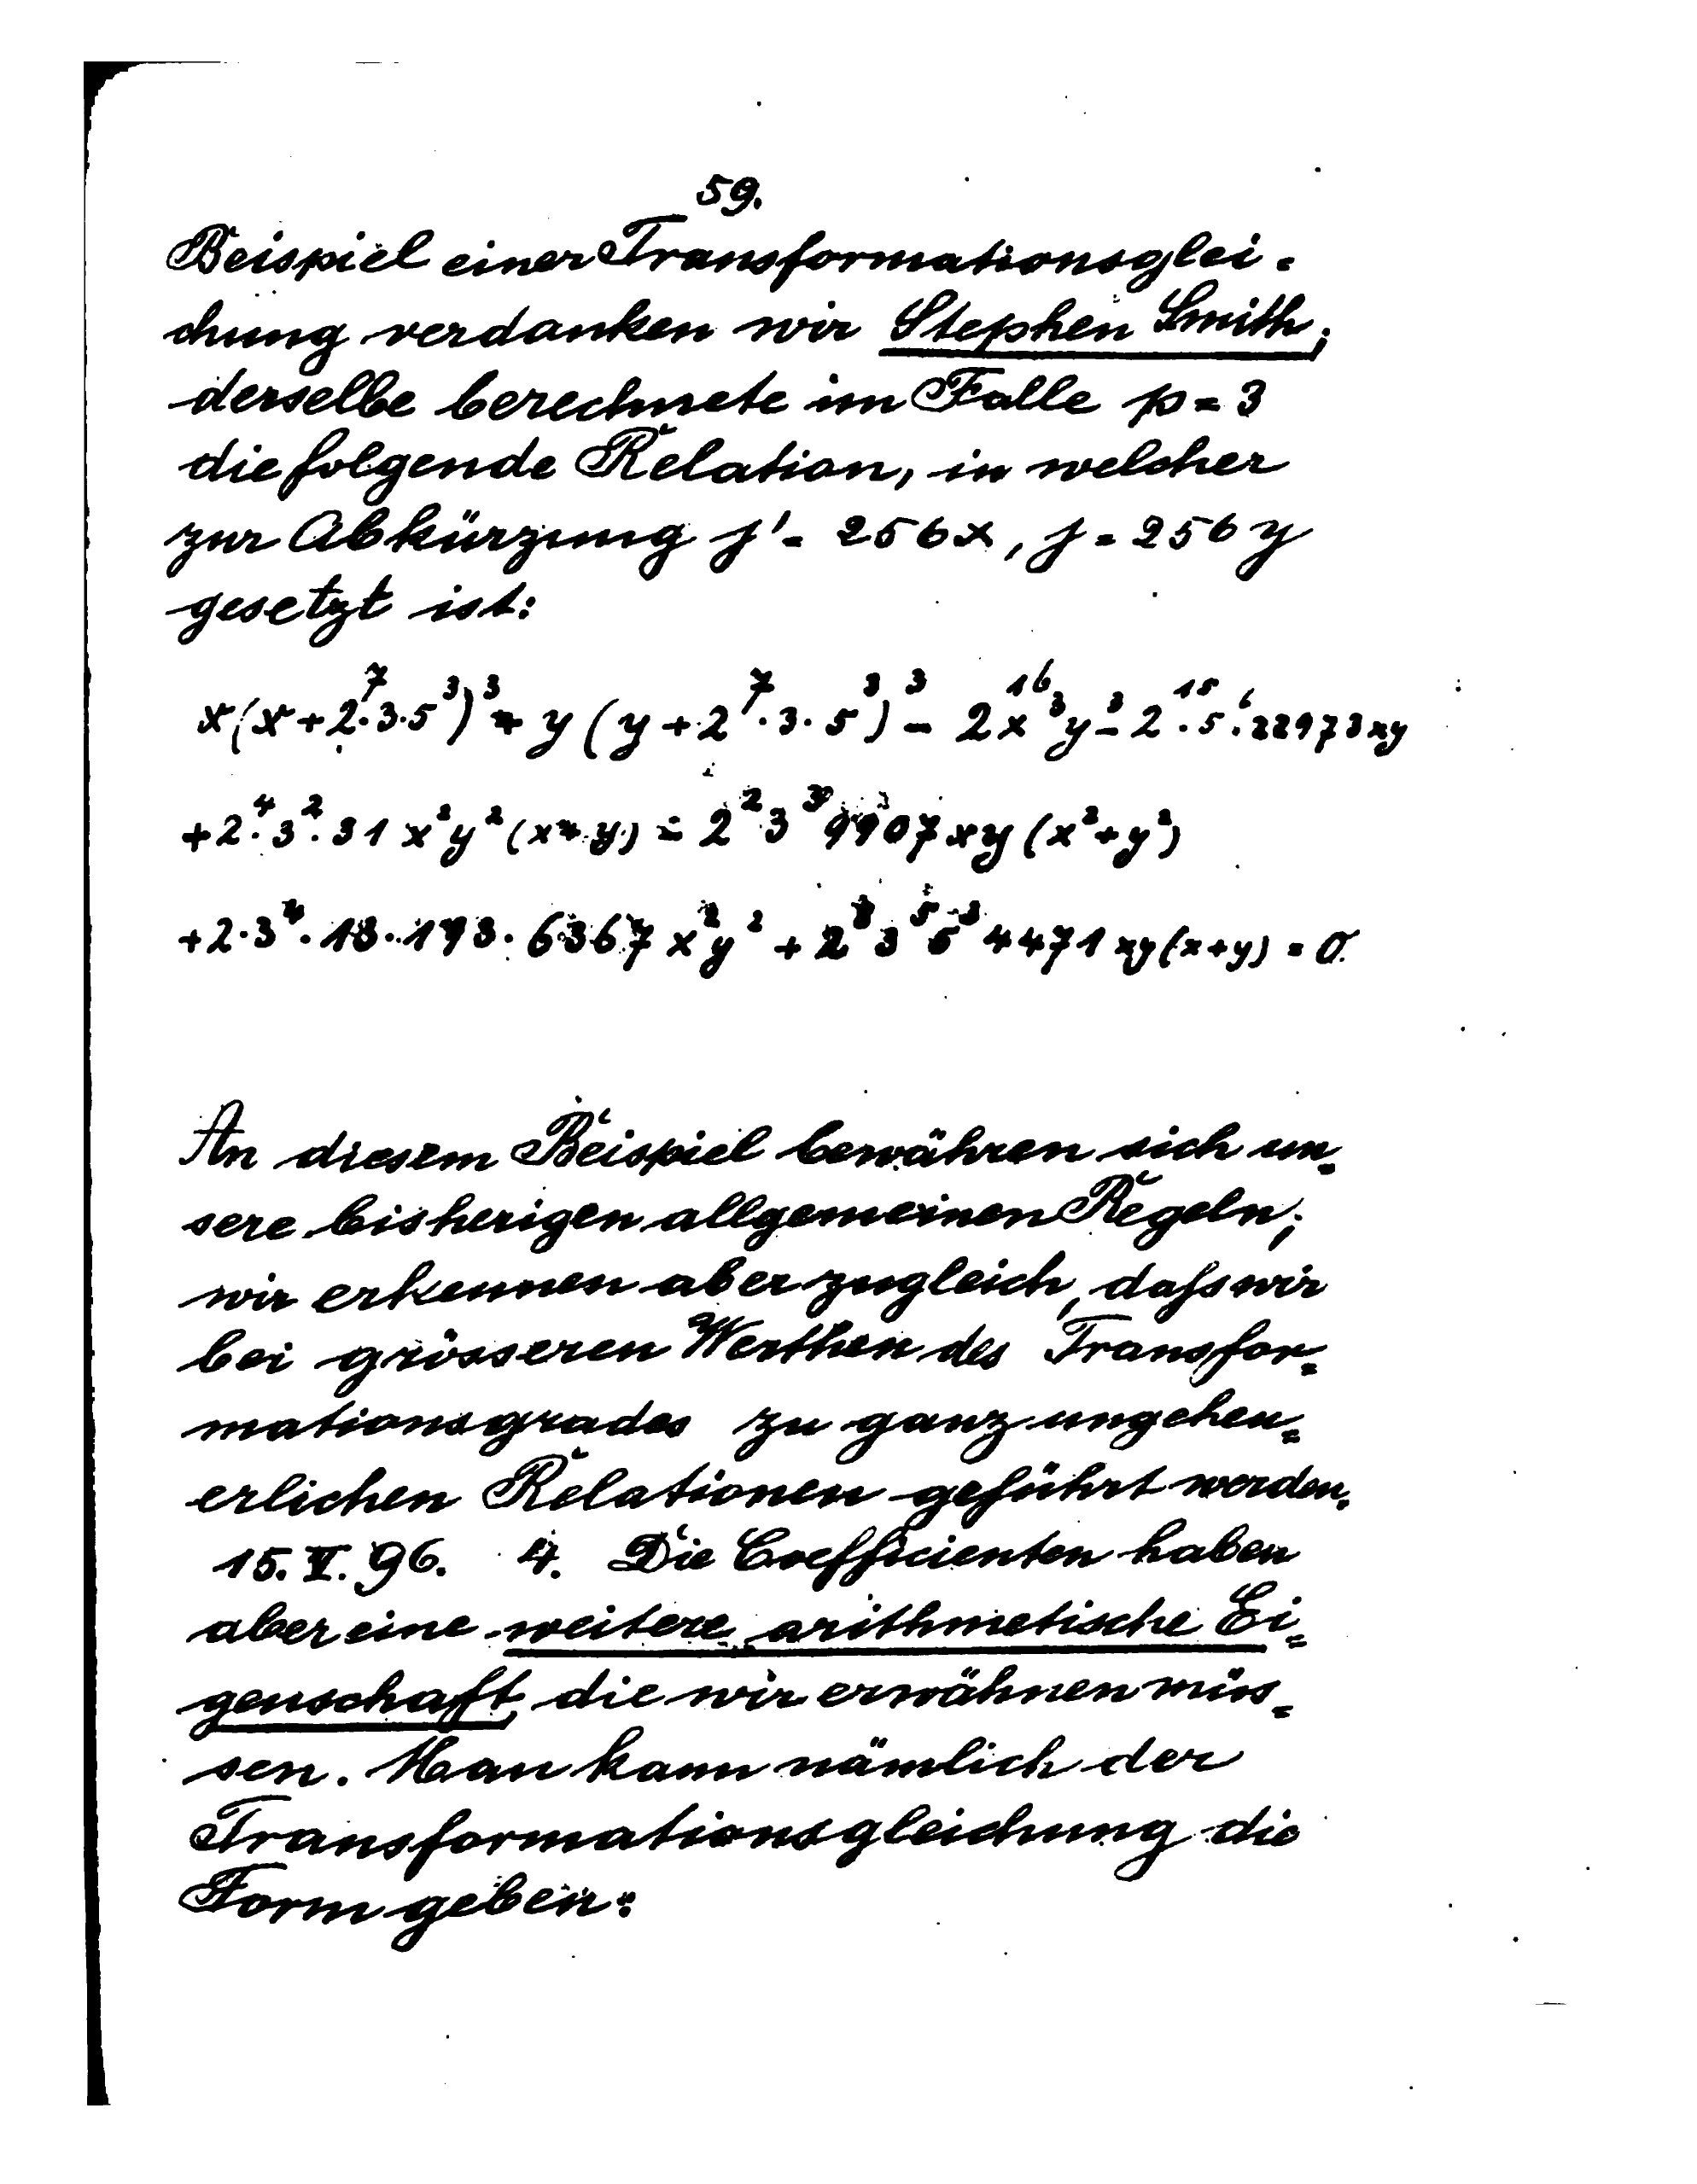 59.
Beispiel einer Transformationsglei-
chung verdanken wir Stephen Smith;
derselbe berechnete im Falle p = 3
die folgende Relation, in welcher
zur Abkürzung j' = 256x, j = 256y
gesetzt ist:
x(x+2⁷·3·5³)³ + y(y+2⁷·3·5³)³ − 2¹⁶x³y³ − 2¹⁵·5⁶·22973xy
+2⁴·3²·31x²y²(x+y) − 2²3³9907xy(x²+y²)
+2·3⁴·13·193·6367x²y² + 2⁸3⁵5³4471xy(x+y) = 0.
An diesem Beispiel bewähren sich un=
sere bisherigen allgemeinen Regeln;
wir erkennen aber zugleich, dafs wir
bei grösseren Werthen des Transfor=
mationsgrades zu ganz ungeheu=
erlichen Relationen geführt werden.
15. V. 96. 4. Die Coefficienten haben
aber eine weitere arithmetische Ei=
genschaft, die wir erwähnen müs=
sen. Man kann nämlich der
Transformationsgleichung die
Form geben: